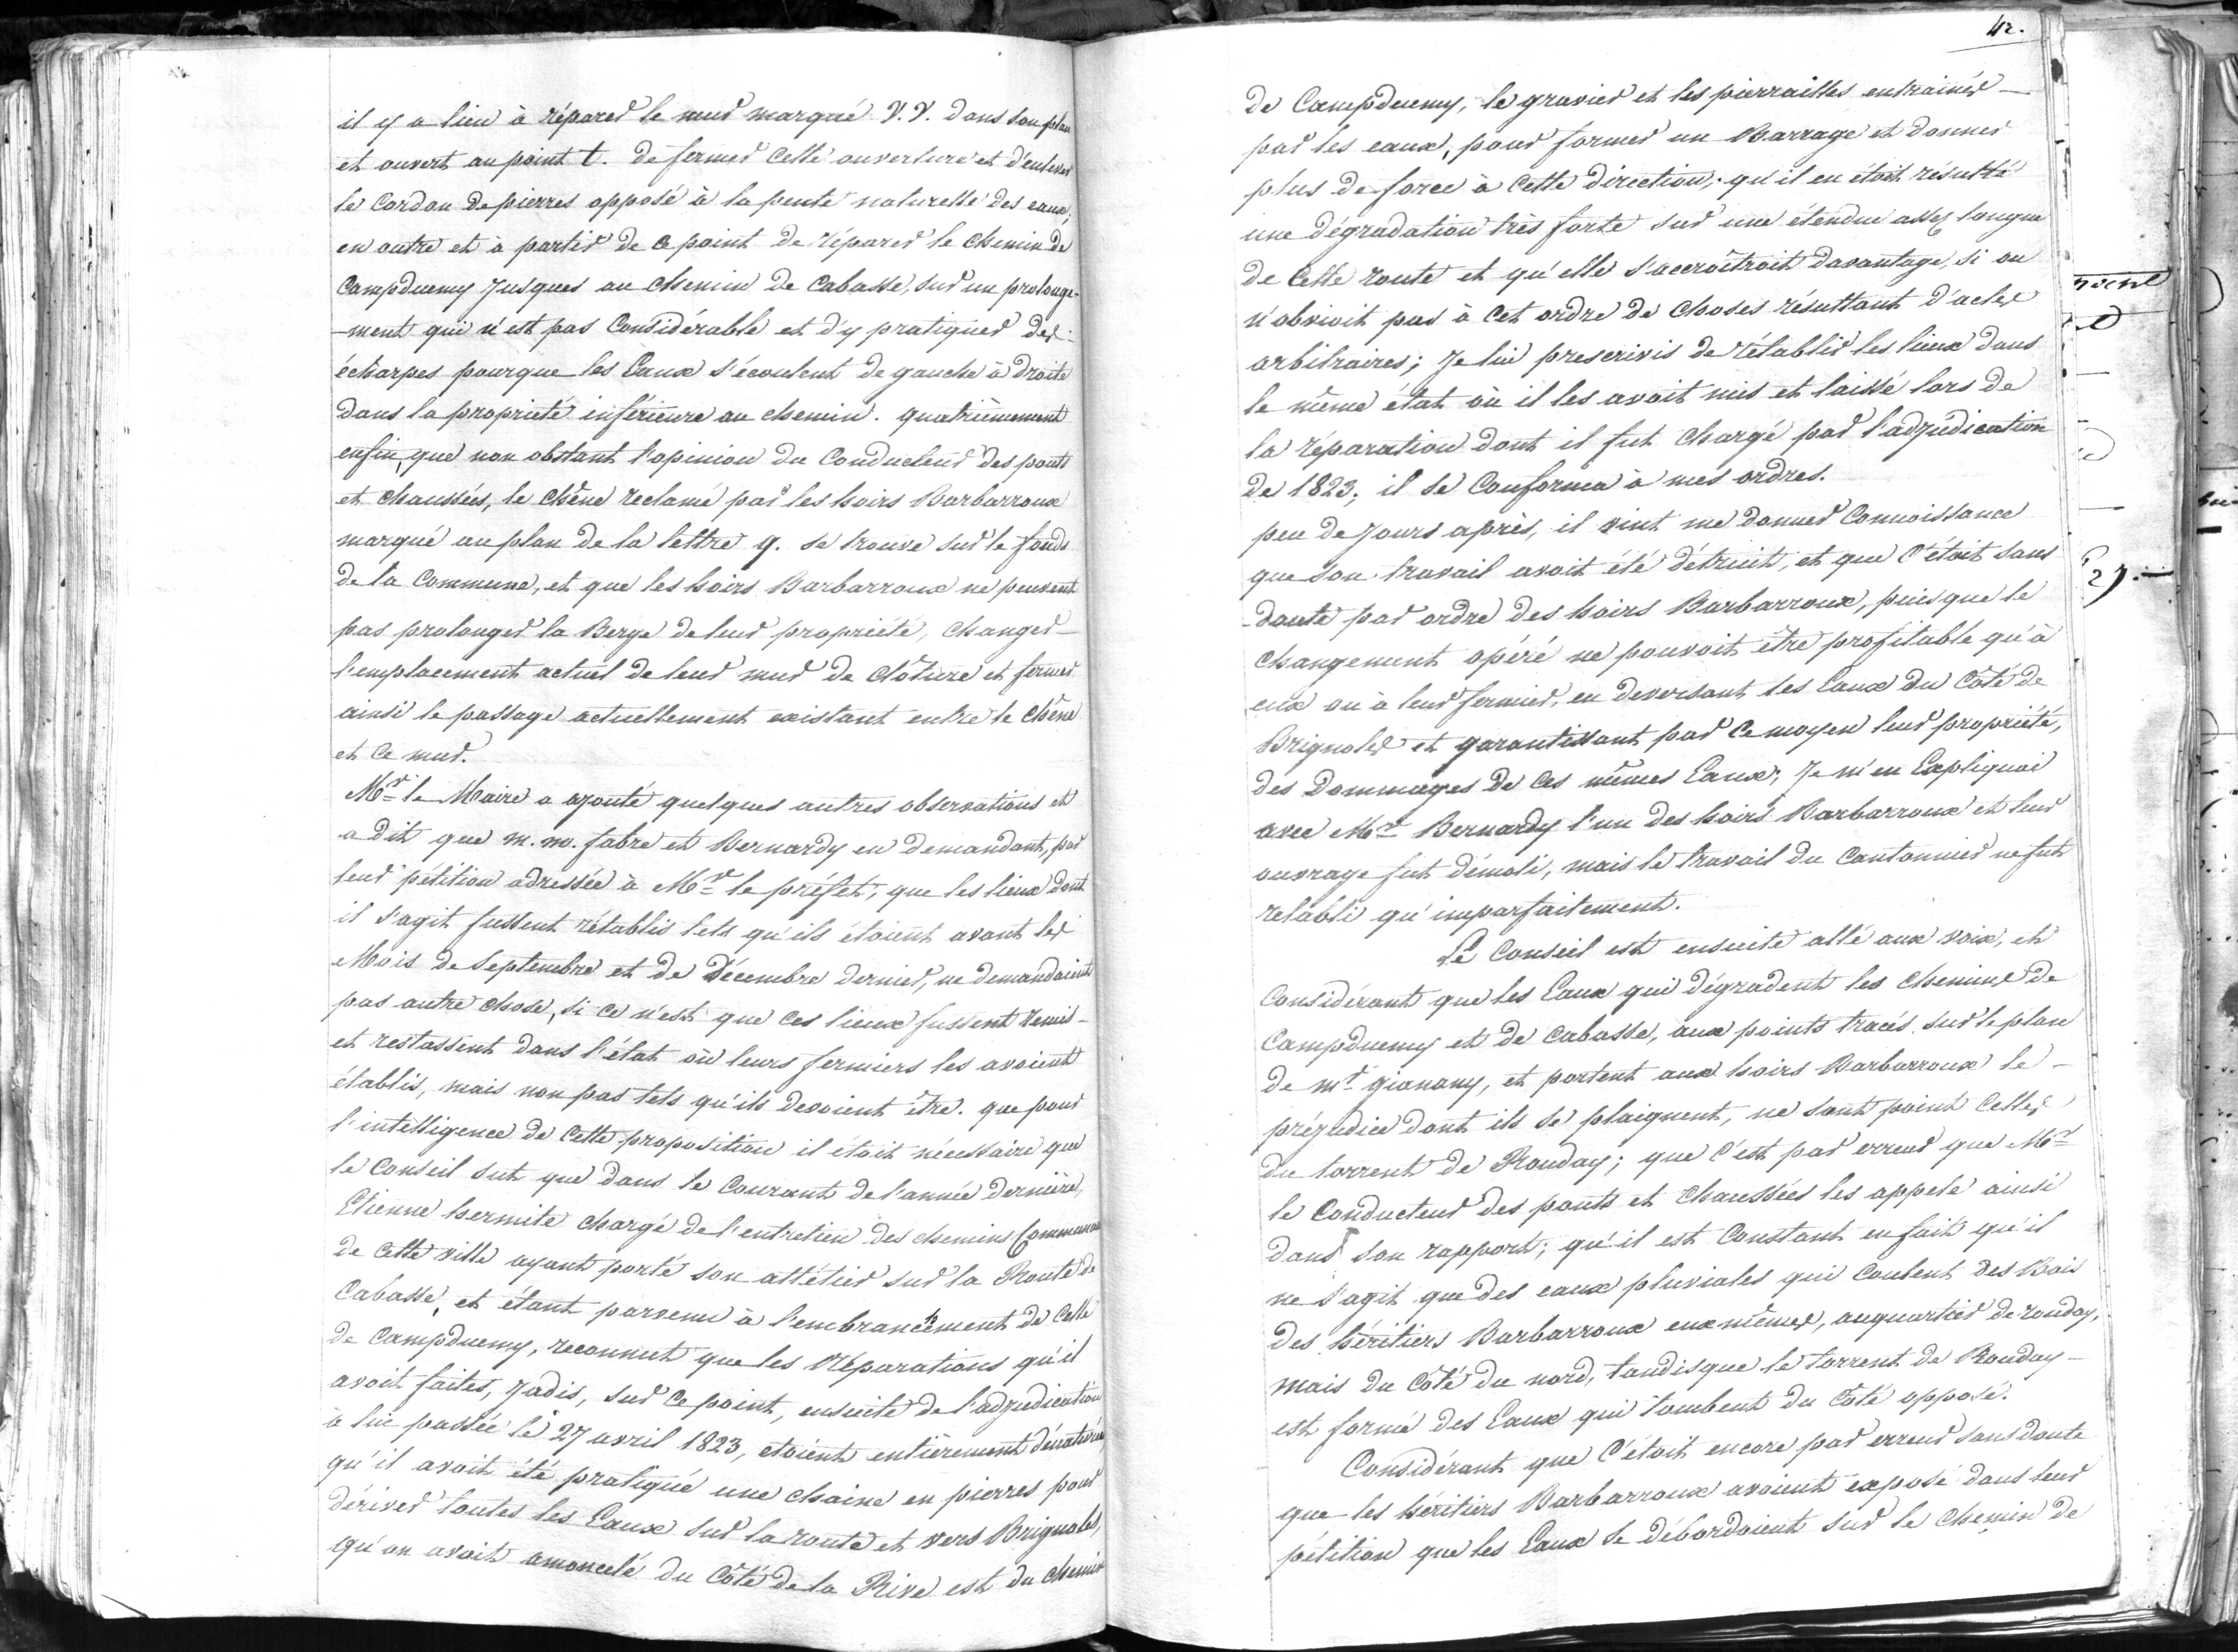 il y a lieu à réparer le mur marqué V.V. dans son plan
et ouvert au point t. de fermer cette ouverture et d'enlever
le Cordon de pierres opposé à la pente naturelle des eaux,
en outre et à partir de ce point de réparer le Chemin de
Campduemy Jusques au Chemin de Cabasse, sur un prolonge-
-ment qui n'est pas Considérable et d'y pratiquer des
écharpes pourque les Eaux s'écoulent de gauche à droite
dans la proprieté inférieure au chemin. quatrièmement
enfin, que non obstant l'opinion du Conducteur des ponts
et chaussées, le chêne reclamé par les hoirs Barbarroux
marqué au plan de la lettre q. se trouve sur le fonds
de la Commune, et que les hoirs Barbarroux ne peuvent
pas prolonger la Berge de leur proprieté, changer
l'emplacement actuel de leur mur de Clôture et fermer
ainsi le passage actuellement existant entre le chêne
et Ce mur.
Mr le Maire a ajouté quelques autres observations et
a dit que m. m. fabre et Bernardy en demandant, par
leur pétition adressée à Mr le préfet, que les lieux dont
il s'agit fussent rétablis tels qu'ils étoient avant les
Mois de Septembre et de Décembre dernier, ne demandoient
pas autre chose, si ce n'est que ces lieux fussent remis
et restassent dans l'état où leurs fermiers les avoient
établis, mais non pas tels qu'ils devoient être. que pour
l'intelligence de Cette proposition il étoit nécessaire que
le Conseil sut que dans le Courant de l'année dernière,
Etienne hermite chargé de l'entretien des chemins Communaux
de Cette ville ayant porté son attélier sur la Route de
Cabasse, et étant parvenu à l'embranchement de Celle
de Campduemy, reconnut que les réparations qu'il
avoit faites, Jadis, sur Ce point, ensuite de l'adjudication
à lui passée le 27 avril 1823, etoient entièrement dénaturées
qu'il avoit été pratiqué une chaine en pierres pour
dériver toutes les Eaux sur la route et vers Brignoles,
qu'on avoit amoncelé du Côté de la Rive est du chemin
42.
de Campduemy, le gravier et les pierrailles entrainés
par les eaux, pour former un Barrage et donner
plus de force à Cette direction; qu'il en étoit résulté
une dégradation très forte sur une étendue assez longue
de Cette route et qu'elle s'accroîtroit davantage, si on
n'obvioit pas à Cet ordre de choses résultant d'actes
arbitraires; Je lui prescrivis de rétablir les lieux dans
le même état où il les avoit mis et laissé lors de
la réparation dont il fut chargé par l'adjudication
de 1823; il se Conforma à mes ordres.
peu de Jours après, il vint me donner Connoissance
que son travail avoit été détruit, et que C'étoit sans
doute par ordre des hoirs Barbarroux, puisque le
changement opéré ne pouvoit être profitable qu'à
eux ou à leur fermier, en deversant les Eaux du Côté de
Brignoles et garantissant par Ce moyen leur proprieté,
des Dommages de Ces mêmes Eaux; Je m'en Expliquai
avec Mr Bernardy l'un des hoirs Barbarroux et leur
ouvrage fut démoli, mais le travail du Cantonnier ne fut
retabli qu'imparfaitement.
Le Conseil est ensuite allé aux voix, et
Considérant que les Eaux qui dégradent les chemins de
Campduemy et de Cabasse, aux points tracés sur le plan
de mr gianany, et portent aux hoirs Barbarroux le
préjudice dont ils se plaignent, ne sont point Celles
du torrent de Rouday; que C'est par erreur que Mr
le Conducteur des ponts et Chaussées les appele ainsi
dans son rapport; qu'il est Constant en fait qu'il
ne s'agit que des eaux pluviales qui Coulent des Bois
des héritiers Barbarroux eux mêmes, au quartier de rouday,
mais du Côté du nord, tandisque le torrent de Rouday
est formé des Eaux qui tombent du Côté opposé.
Considérant que C'étoit encore par erreur sans doute
que les héritiers Barbarroux avoient exposé dans leur
pétition que les Eaux se débordoient sur le Chemin de